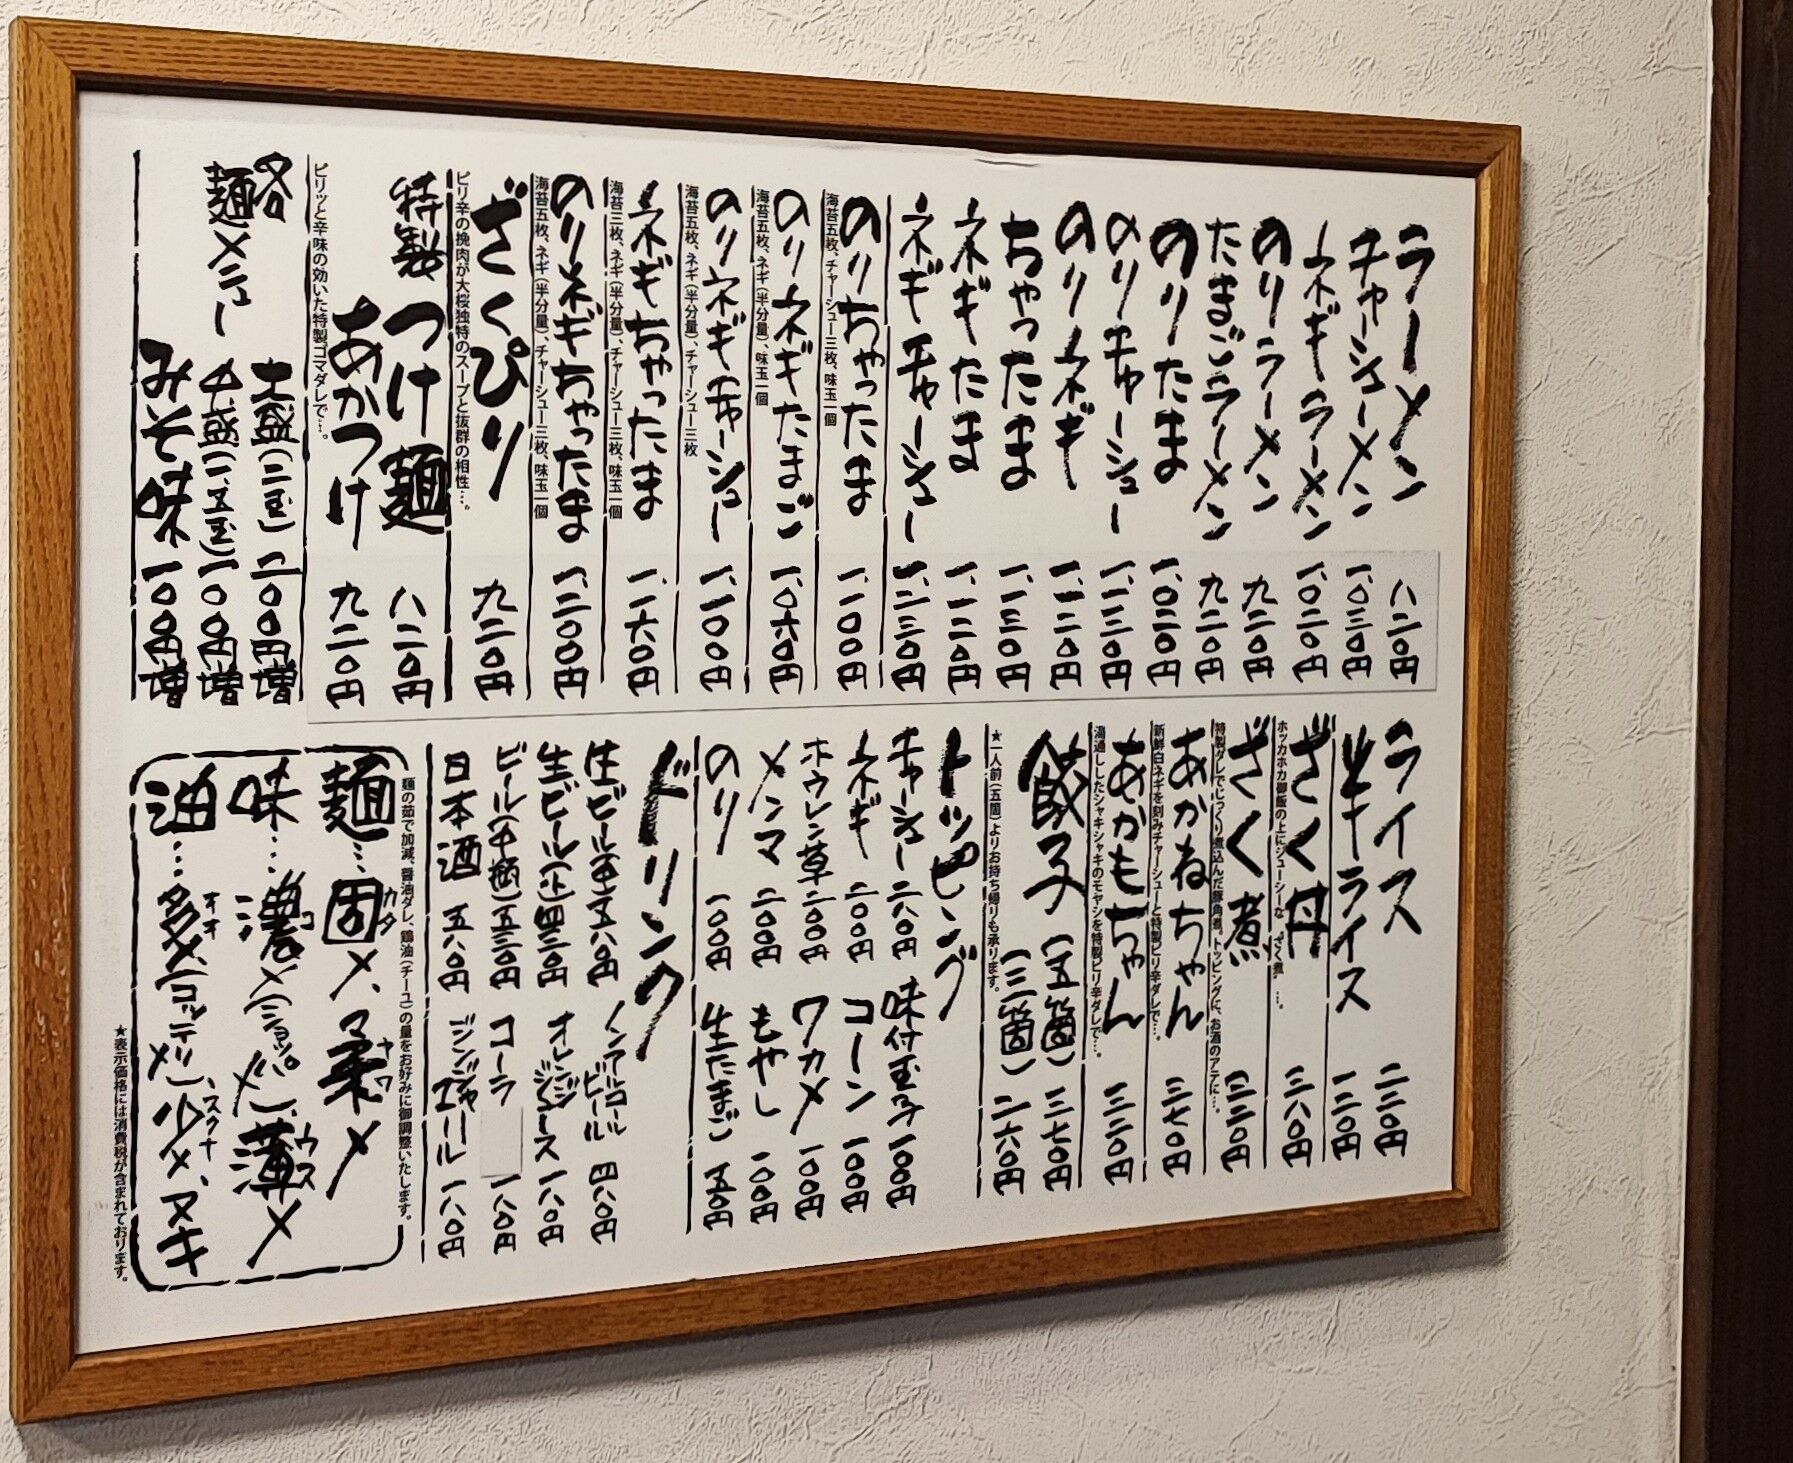 ラーメン 八二〇円
チャーシューメン 一、〇三〇円
ネギラーメン 一、〇二〇円
のりラーメン 九二〇円
たまごラーメン 九二〇円
のりたま 一、〇二〇円
のりチャーシュー 一、一三〇円
のりネギ 一、一二〇円
ちゃったま 一、一三〇円
ネギたま 一、一二〇円
ネギチャーシュー 一、二三〇円
のりちゃったま 一、一〇〇円
海苔五枚、チャーシュー三枚、味玉一個
のりネギたまご 一、〇六〇円
海苔五枚、ネギ(半分量)、味玉一個
のりネギチャーシュー 一、一〇〇円
海苔五枚、ネギ(半分量)、チャーシュー三枚
ネギちゃったま 一、一六〇円
海苔三枚、ネギ(半分量)、チャーシュー三枚、味玉一個
のりネギちゃったま 一、二〇〇円
海苔五枚、ネギ(半分量)、チャーシュー三枚、味玉一個
ざくぴり 九二〇円
ピリ辛の挽肉が大桜独特のスープと抜群の相性…。
特製つけ麺 八二〇円
あかつけ 九二〇円
ピリッと辛味の効いた特製ゴマダレで…。
各麺メニュー
大盛(二玉) 二〇〇円増
中盛(一、五玉) 一〇〇円増
みそ味 一〇〇円増
ライス 二三〇円
半ライス 一三〇円
ざく丼 三八〇円
ホッカホカ御飯の上にジューシーな“ざく煮”…。
ざく煮 三三〇円
特製ダレでじっくり煮込んだ豚角煮。トッピングに、お酒のアテに…。
あかねちゃん 三七〇円
新鮮白ネギを刻みチャーシューと特製ピリ辛ダレで…。
あかもちゃん 三二〇円
湯通ししたシャキシャキのモヤシを特製ピリ辛ダレで…。
餃子(五箇) 三七〇円
(三箇) 二六〇円
★一人前(五箇)よりお持ち帰りも承ります。
トッピング
チャーシュー 二八〇円 味付玉子 一〇〇円
ネギ 二〇〇円 コーン 一〇〇円
ホウレン草 二〇〇円 ワカメ 一〇〇円
メンマ 二〇〇円 もやし 一〇〇円
のり 一〇〇円 生たまご 五〇円
ドリンク
生ビール(中) 五八〇円 ノンアルコールビール 四八〇円
生ビール(小) 四三〇円 オレンジジュース 一八〇円
ビール(中瓶) 五三〇円 コーラ 一八〇円
日本酒 五八〇円 ジンジャエール 一八〇円
麺の茹で加減、醤油ダレ、鶏油(チーユ)の量をお好みに御調整いたします。
麺…固メ、柔メ
カタ ヤワ
味…濃メ(ショッパメ)、薄メ
コ ウス
油…多メ(コッテリメ)、少メ、ヌキ
オオ スクナ
★表示価格には消費税が含まれております。